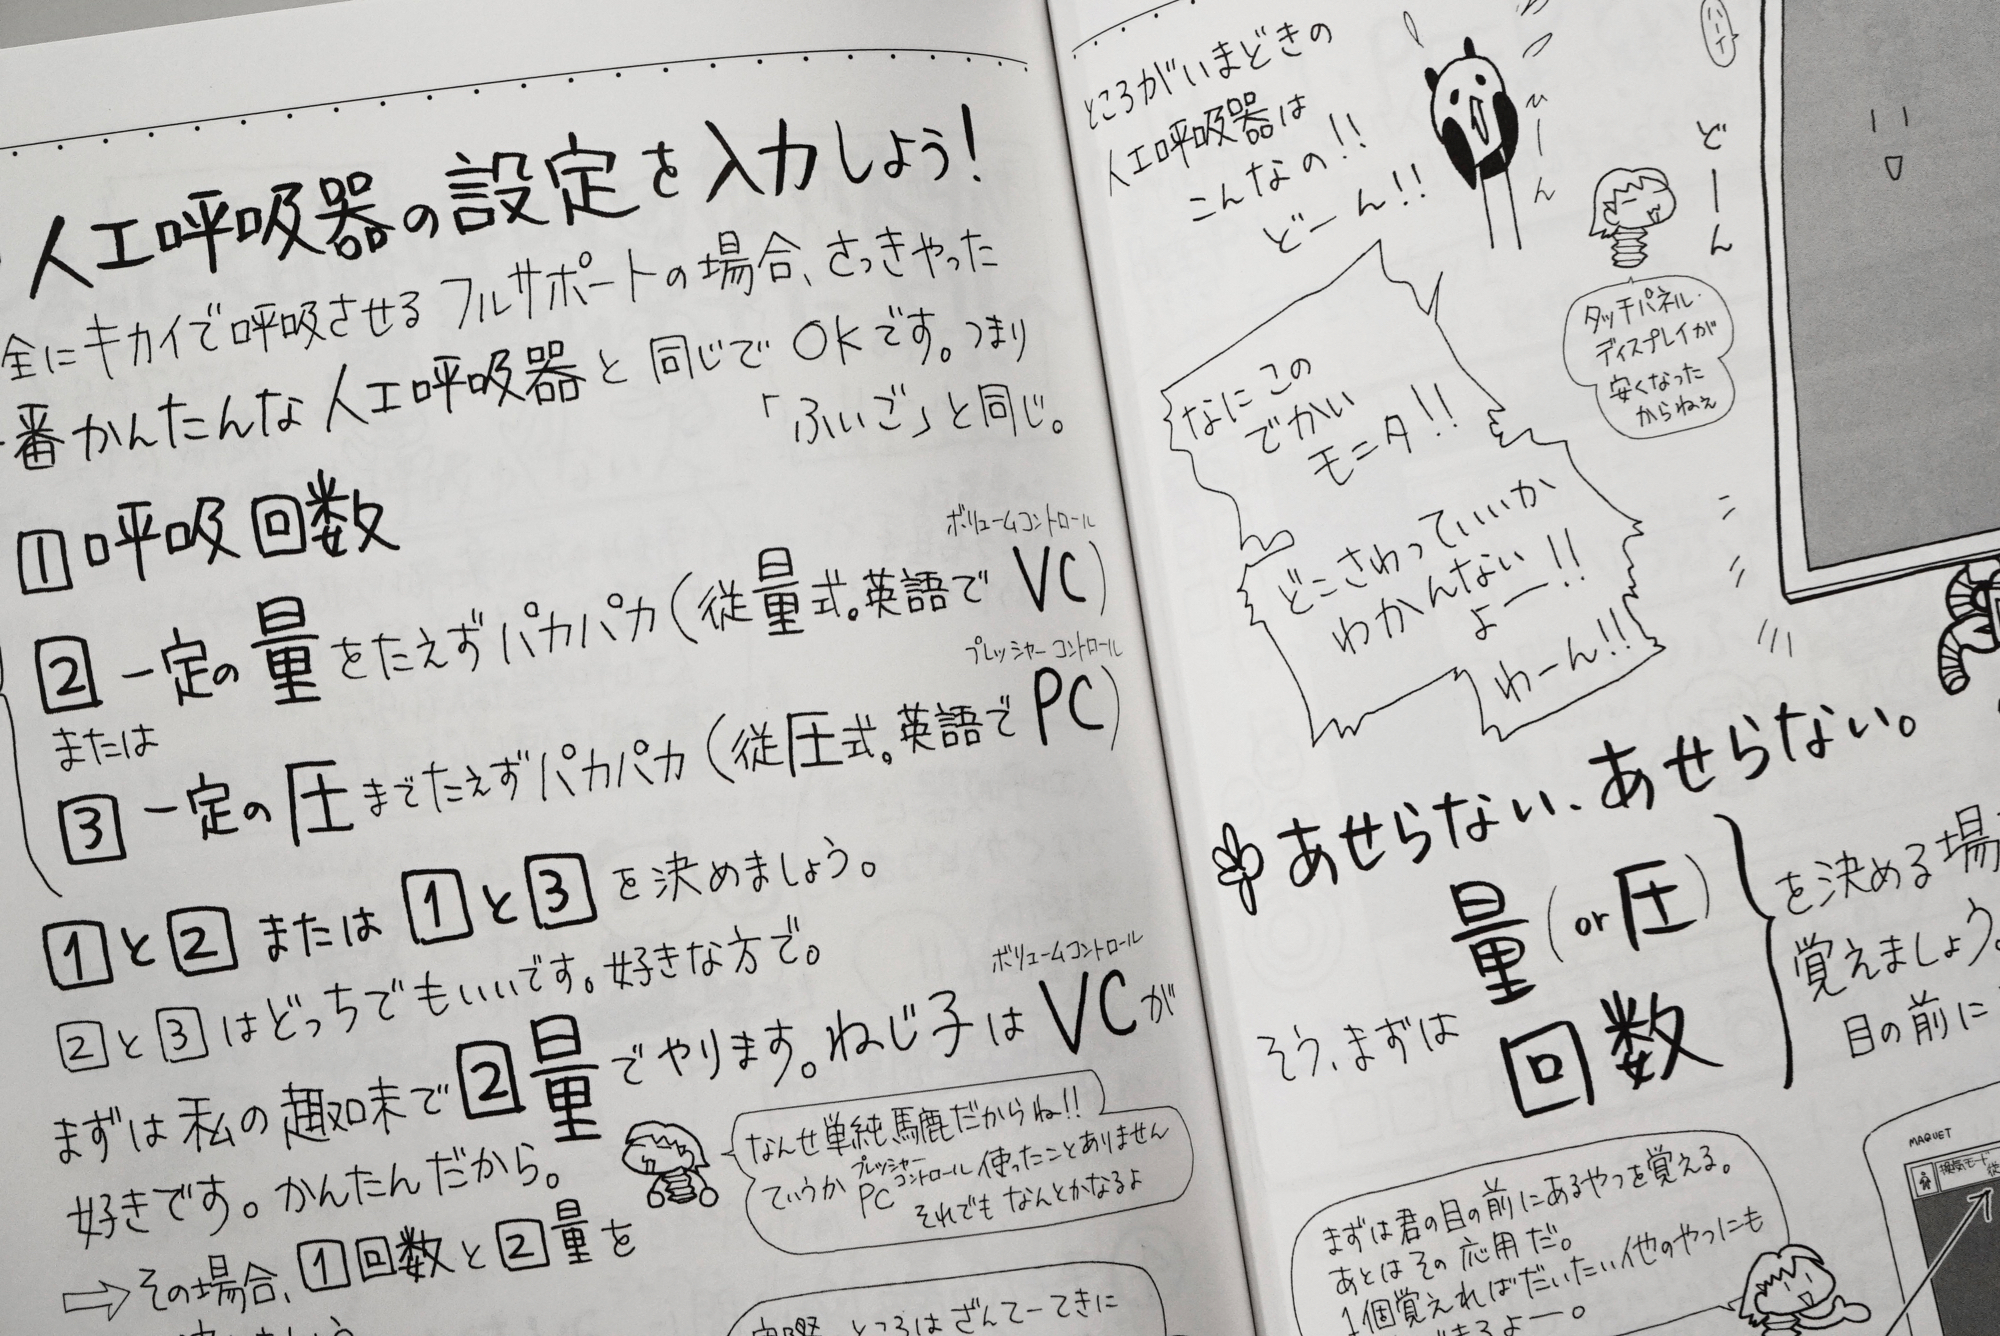 人工呼吸器の設定を入力しよう!
全にキカイで呼吸させるフルサポートの場合、さっきやった
一番かんたんな人工呼吸器と同じでOKです。つまり
「ふいご」と同じ。
1 呼吸回数
ボリュームコントロール
2 一定の量をたえずパカパカ(従量式。英語でVC)
または
プレッシャーコントロール
3 一定の圧までたえずパカパカ(従圧式。英語でPC)
1と2または1と3を決めましょう。
2と3はどっちでもいいです。好きな方で。
ボリュームコントロール
まずは私の趣味で2量でやります。ねじ子はVCが
好きです。かんたんだから。
なんせ単純馬鹿だからね!!
ていうかPCプレッシャーコントロール使ったことありません
それでもなんとかなるよ
⇨その場合、1回数と2量を
ところはざんてーてきに
ところがいまどきの
人工呼吸器は
こんなの!!
どーん!!
ひーん
どーん
ハーイ
タッチパネル・
ディスプレイが
安くなった
からねぇ
なにこの
でかい
モニタ!!
どこさわっていいか
わかんない
よー!!
わーん!!
あせらない、あせらない。
そう、まずは
量(or圧)
回数
を決める場
覚えましょう。
目の前に
まずは君の目の前にあるやつを覚える。
あとはその応用だ。
1個覚えればだいたい他のやつにも
できるよー。
MAQUET
換気モード
従